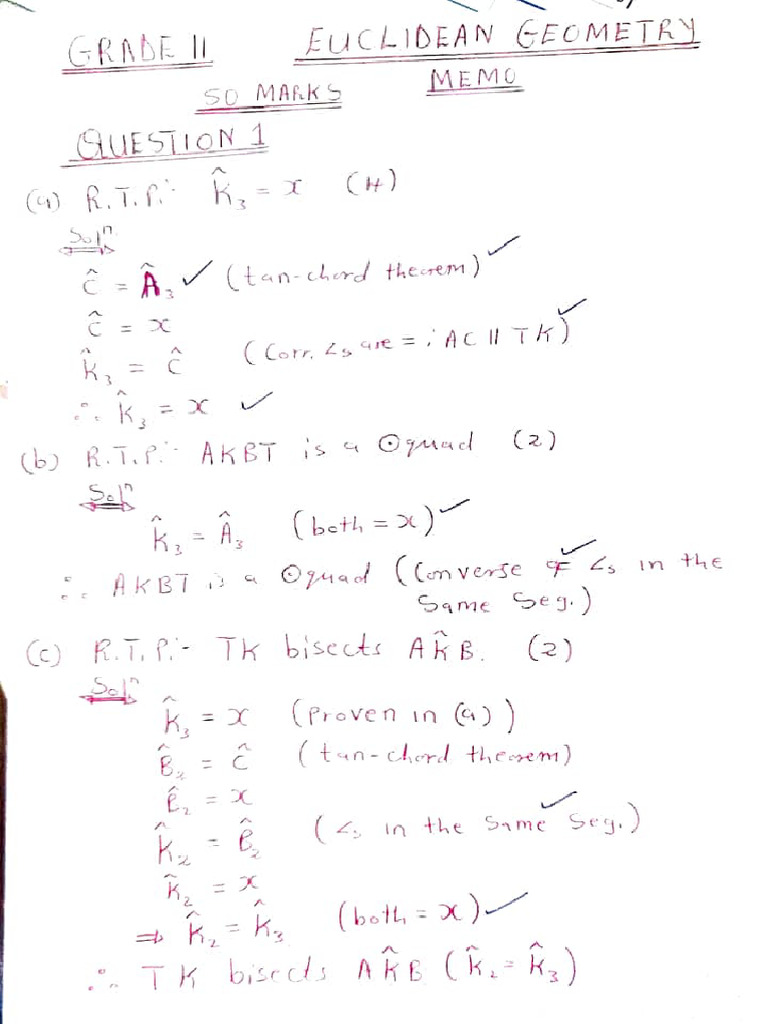 GRADE 11 EUCLIDEAN GEOMETRY
50 MARKS MEMO
QUESTION 1
(a) R.T.P:- K̂₃ = x (4)
Solⁿ
Ĉ = Â₃ ✓ (tan-chord theorem) ✓
Ĉ = x
K̂₃ = Ĉ (Corr. ∠s are = ; AC || TK) ✓
∴ K̂₃ = x ✓
(b) R.T.P:- AKBT is a ⊙quad (2)
Solⁿ
K̂₃ = Â₃ (both = x) ✓
∴ AKBT is a ⊙quad (Converse of ∠s in the
Same Seg.) ✓
(c) R.T.P:- TK bisects AK̂B. (2)
Solⁿ
K̂₃ = x (Proven in (a))
B̂₂ = Ĉ (tan-chord theorem)
B̂₂ = x
K̂₂ = B̂₂ (∠s in the Same Seg.) ✓
K̂₂ = x
⇒ K̂₂ = K̂₃ (both = x) ✓
∴ TK bisects AK̂B (K̂₂ = K̂₃)